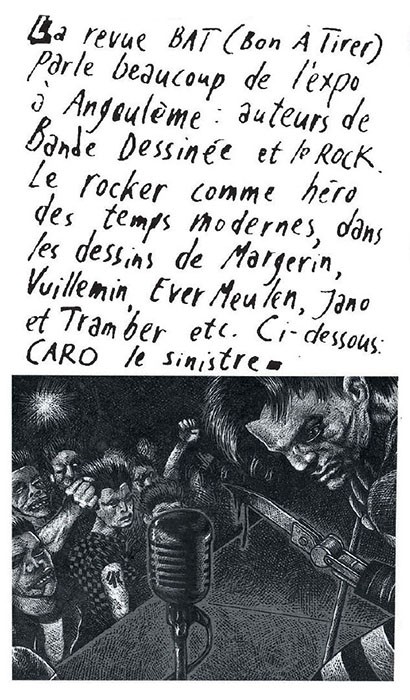 La revue BAT (Bon A Tirer)
parle beaucoup de l'expo
à Angoulême : auteurs de
Bande Dessinée et le ROCK.
Le rocker comme héro
des temps modernes, dans
les dessins de Margerin,
Vuillemin, Ever Meulen, Jano
et Tramber etc. Ci-dessous:
CARO le sinistre